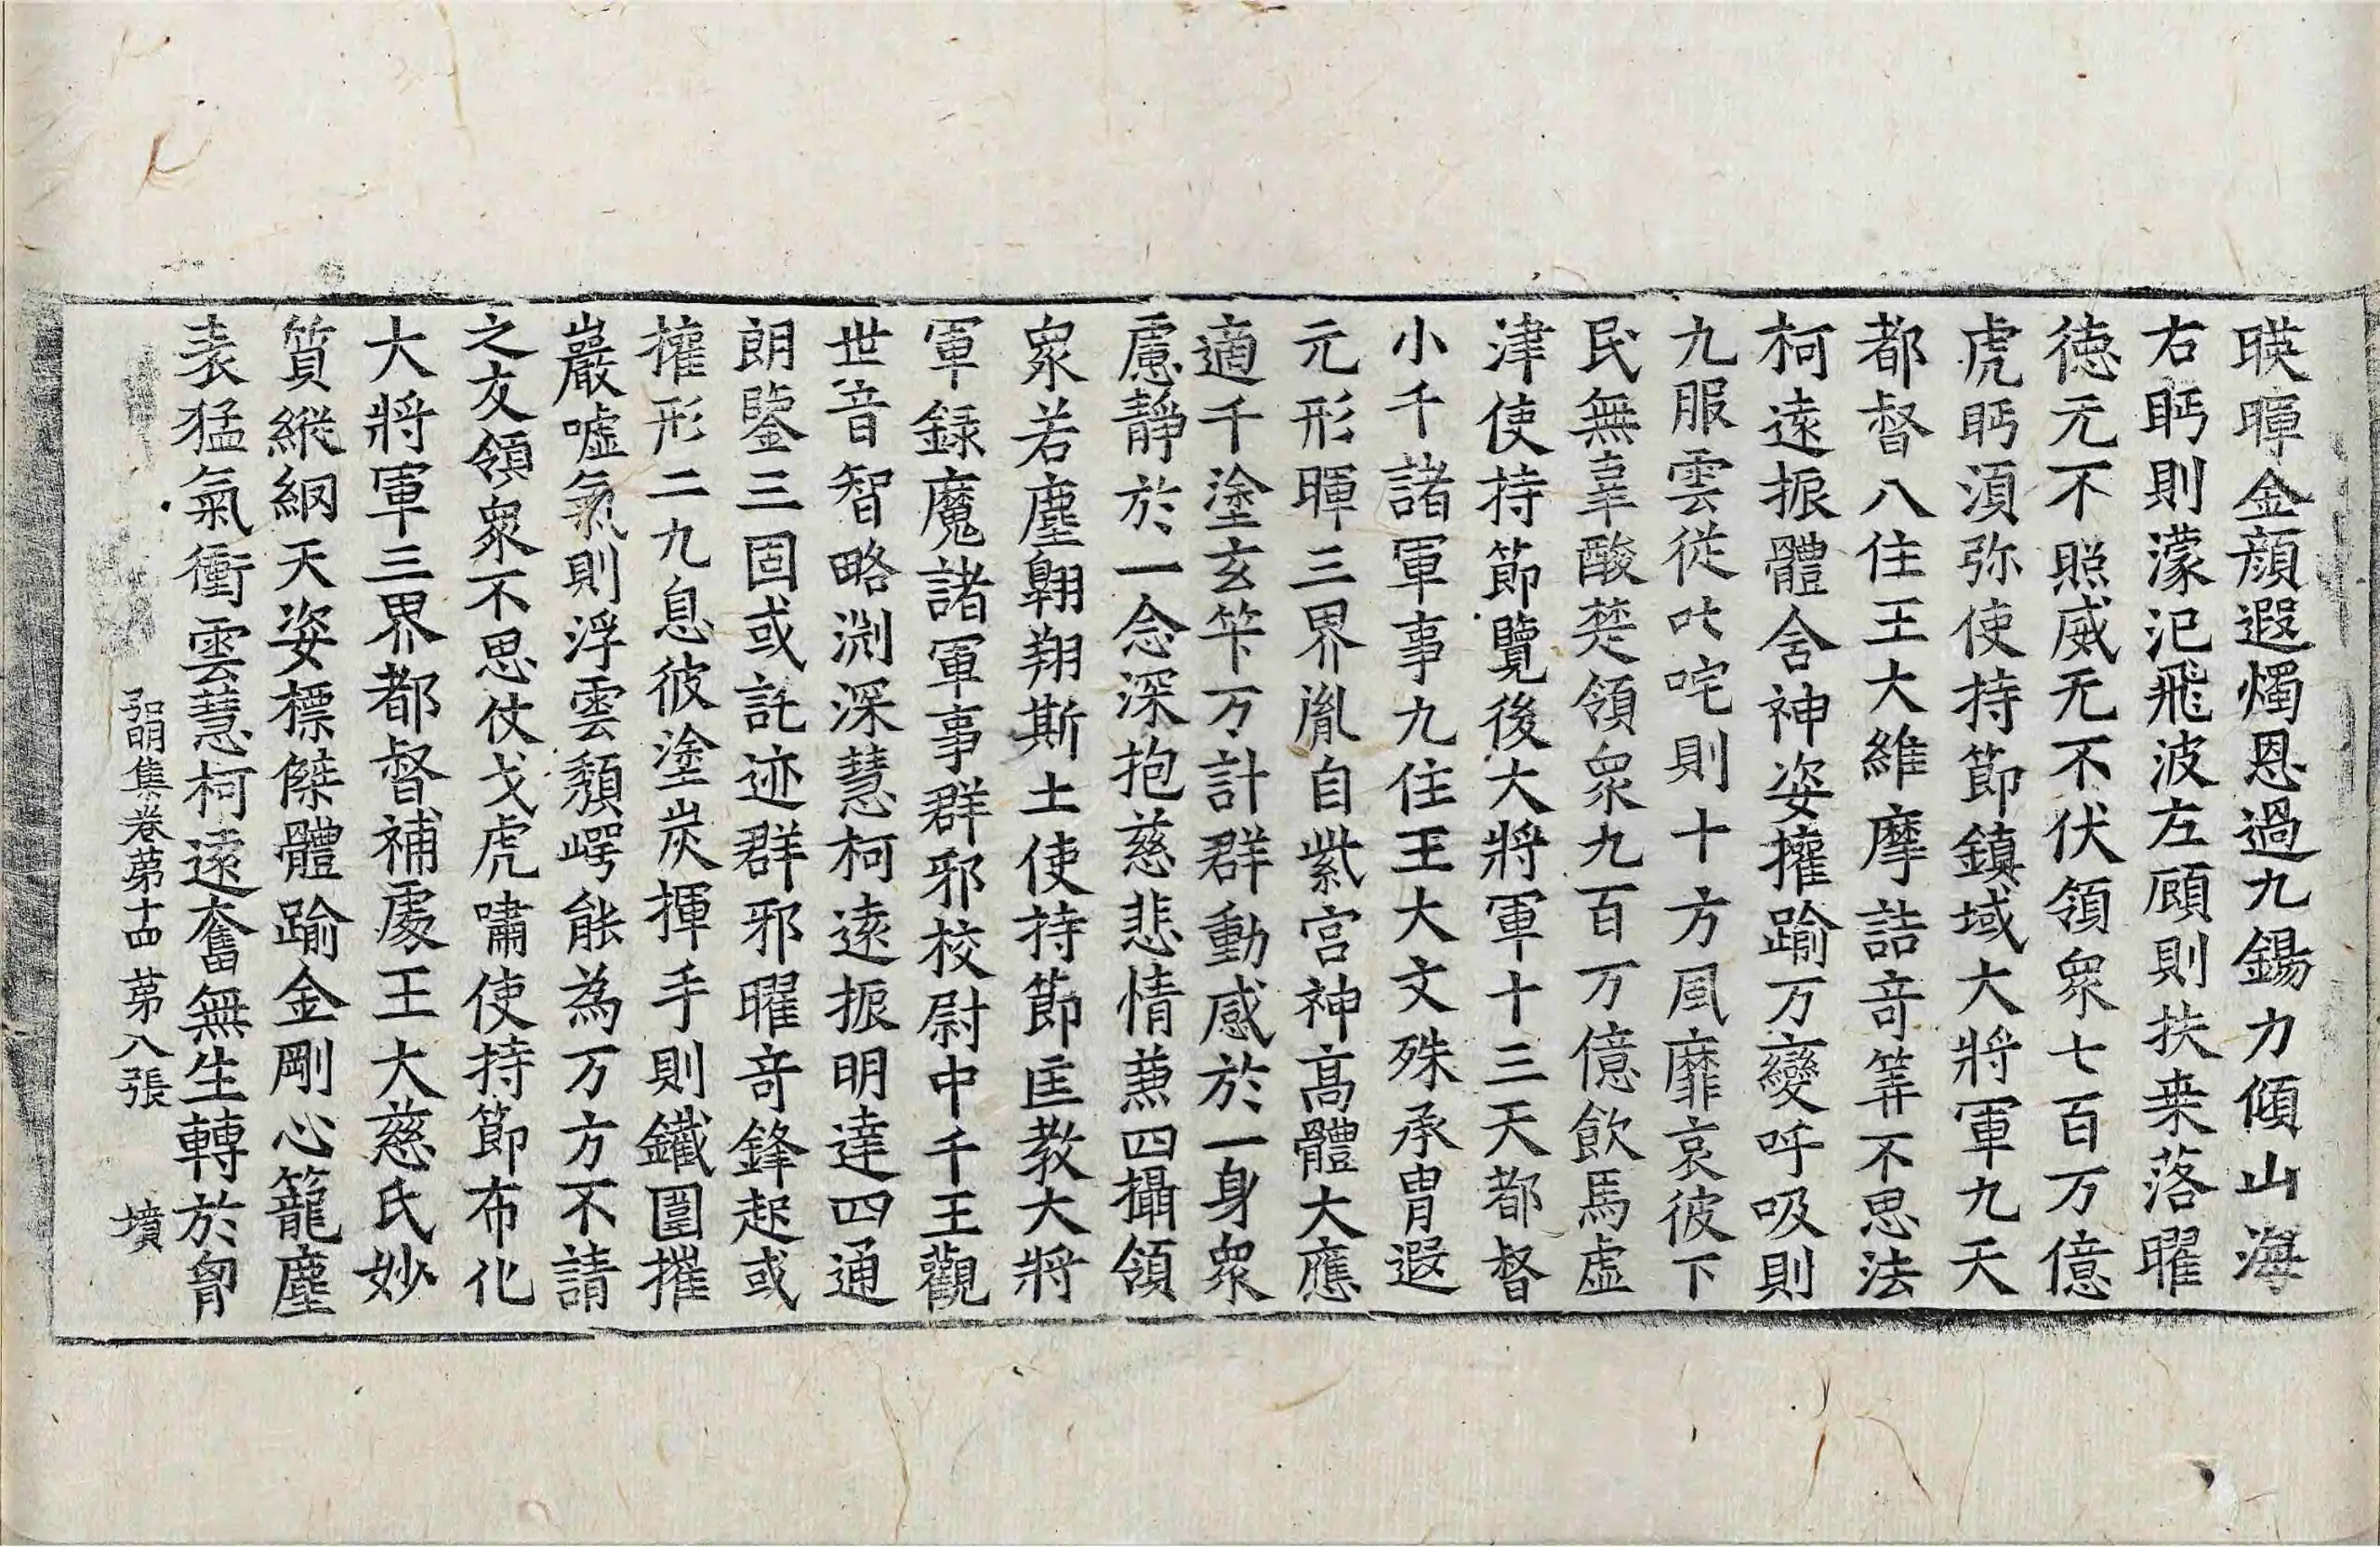 暎暉金顔遐燭恩過九錫力傾山海
右眄則濛汜飛波左顧則扶桒落曜
徳元不照威无不伏領衆七百万億
虎眄湏弥使持節鎮域大將軍九天
都督八住王大維摩詰竒筭不思法
柯遠振體舍神姿㩲踰万變呼吸則
九服雲從叱咤則十方風靡哀彼下
民無辜酸𢙇領衆九百万億飲馬虚
津使持節覽後大將軍十三天都督
小千諸軍事九住王大文殊承胄遐
元形暉三界胤自紫宫神髙體大應
適千塗玄筭万計群動感於一身衆
慮靜於一念深抱慈悲情𠔥四攝領
衆若塵翺翔斯土使持節匡教大將
軍録魔諸軍事群邪校尉中千王觀
世音智略渊深慧柯遠振明達四通
朗鑒三固或託迹群邪曜竒鋒起或
㩲形二九息彼塗炭揮手則鐵圍摧
巖嘘氣則浮雲頽崿能為万方不請
之友領衆不思仗戈虎嘯使持節布化
大將軍三界都督補處王大慈氏妙
質縱網天姿標傑體踰金剛心籠塵
表猛氣衝雲慧柯遠奮無生轉於胷
弘明集卷苐十四 苐八張 墳